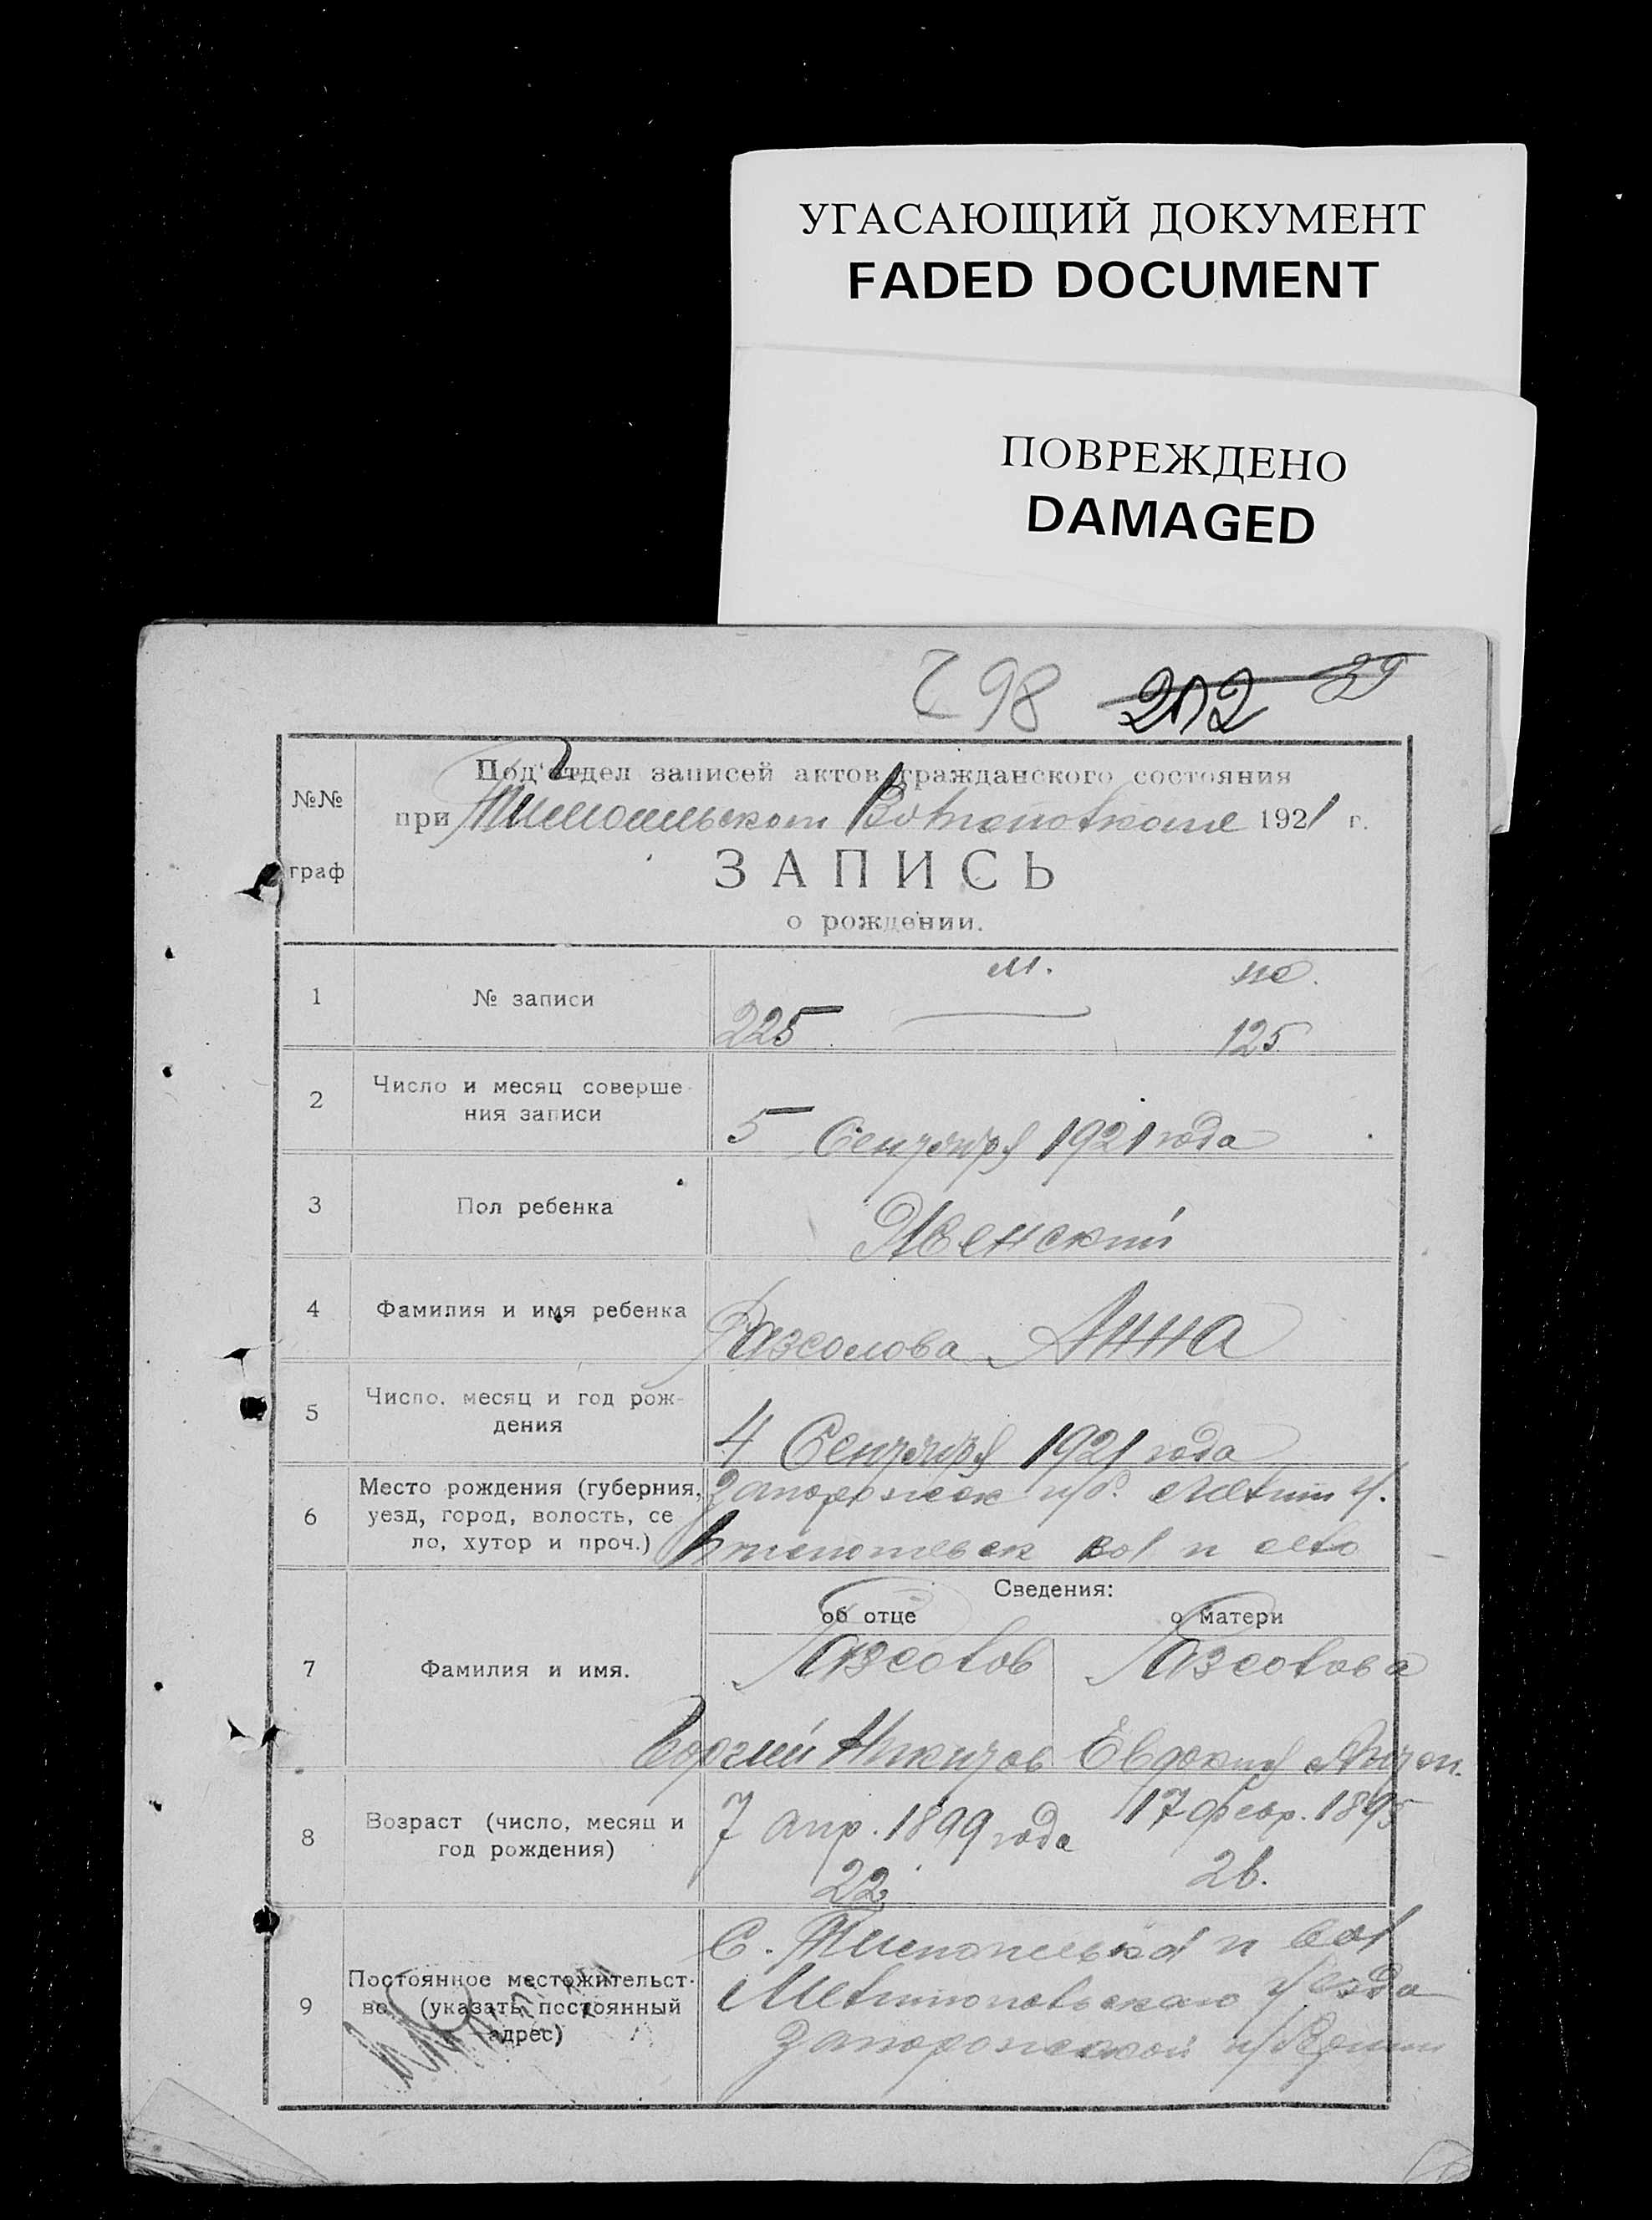 УГАСАЮЩИЙ ДОКУМЕНТ
FADED DOCUMENT
ПОВРЕЖДЕНО
DAMAGED
98 202 39
№№
граф
Под'отдел записей актов гражданского состояния
при 1921 г.
ЗАПИСЬ
о рождении.
м. ж.
1 № записи 225 125
2 Число и месяц соверше-
ния записи
5 Сентября 1921 года
3 Пол ребенка Женский
4 Фамилия и имя ребенка Разсолова Анна
5 Число, месяц и год рож-
дения
4 Сентября 1921 года
6 Место рождения (губерния,
уезд, город, волость, се
ло, хутор и проч.)
Запорожск губ. Мелит у.
вол и село
Сведения:
об отце о матери
7 Фамилия и имя. Разсолов Разсолова
Георгий Никитов Евдокия
8 Возраст (число, месяц и
год рождения)
7 апр. 1899 года 17 февр. 1895
22 26.
9 Постоянное местожительст-
во (указать постоянный
адрес)
С. и вол
Мелитопольского уезда
Запорожской губернии